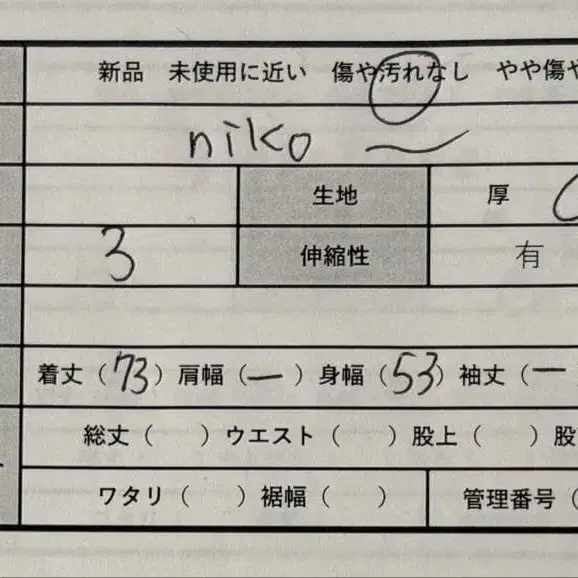 新品 未使用に近い 傷や汚れなし やや傷や
niko 〜
生地 厚
3 伸縮性 有
着丈（73）肩幅（ー）身幅（53）袖丈（ー
総丈（ ）ウエスト（ ）股上（ ）股
ワタリ（ ）裾幅（ ） 管理番号（